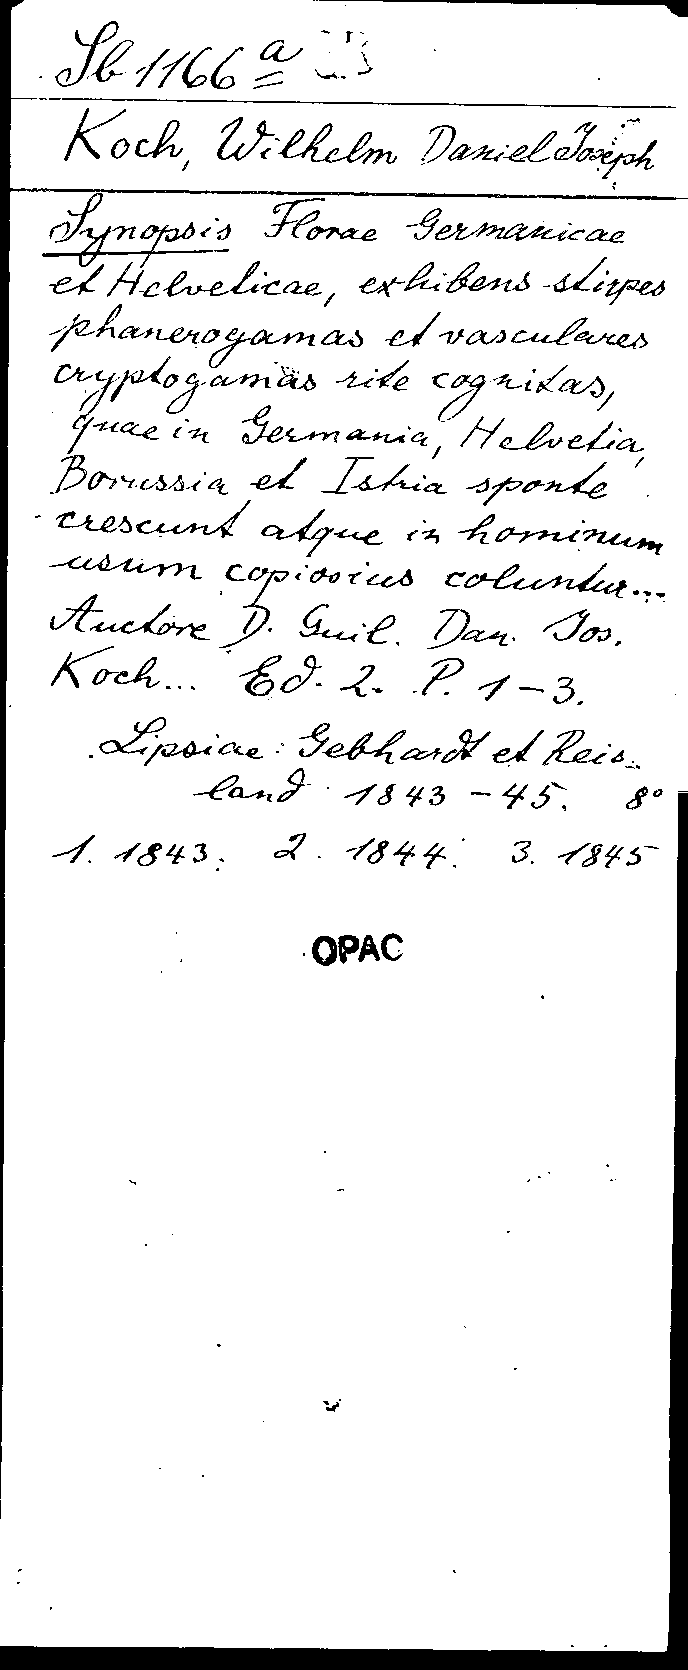 Sb 1166 a
Koch, Wilhelm Daniel Joseph
Synopsis Florae Germanicae
et Helveticae, exhibens stirpes
phanerogamas et vasculares
cryptogamas rite cognitas,
quae in Germania, Helvetia,
Borussia et Istria sponte
crescunt atque in hominum
usum copiosius coluntur...
Auctore D. Guil. Dan. Jos.
Koch... Ed. 2. P. 1-3.
Lipsiae: Gebhardt et Reis-
land 1843-45. 8°
1. 1843. 2. 1844. 3. 1845
OPAC